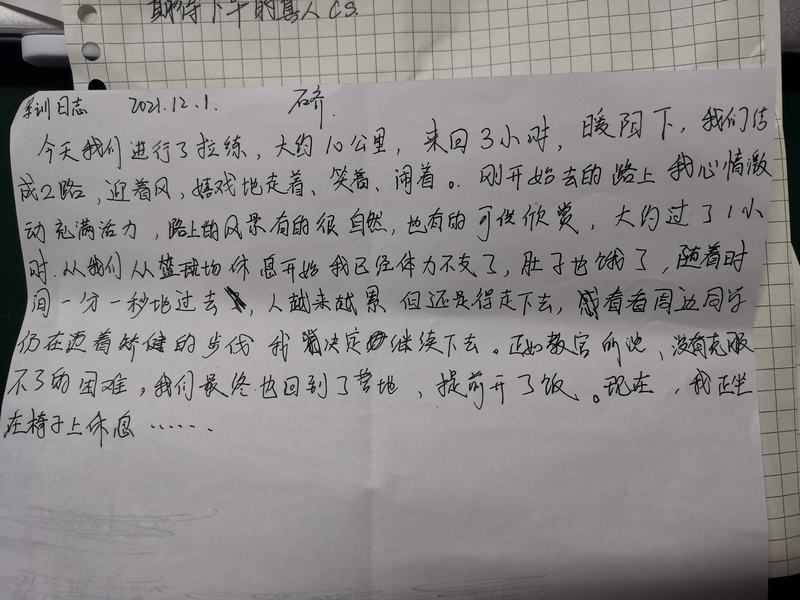 期待下午的真人CS.
军训日志 2021.12.1. 硕
今天我们进行了拉练，大约10公里，来回3小时，暖阳下，我们结
成2路，迎着风，嬉戏地走着、笑着、闹着。刚开始去的路上我心情激
动充满活力，路上的风景有的很自然，也有的可供欣赏，大约过了1小
时.从我们从篮球场休息开始我已经体力不支了，肚子也饿了，随着时
间一分一秒地过去，人越来越累但还是得走下去，感着看周边同学
仍在迈着矫健的步伐我决定继续下去。正如教官所说，没有克服
不了的困难，我们最终也回到了营地，提前开了饭。现在，我正坐
在椅子上休息……